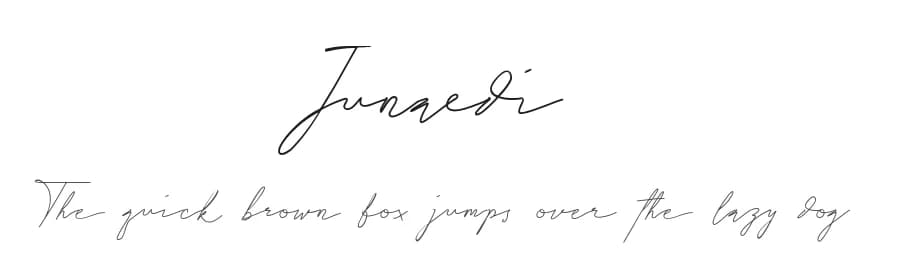 Junaedi
The quick brown fox jumps over the lazy dog